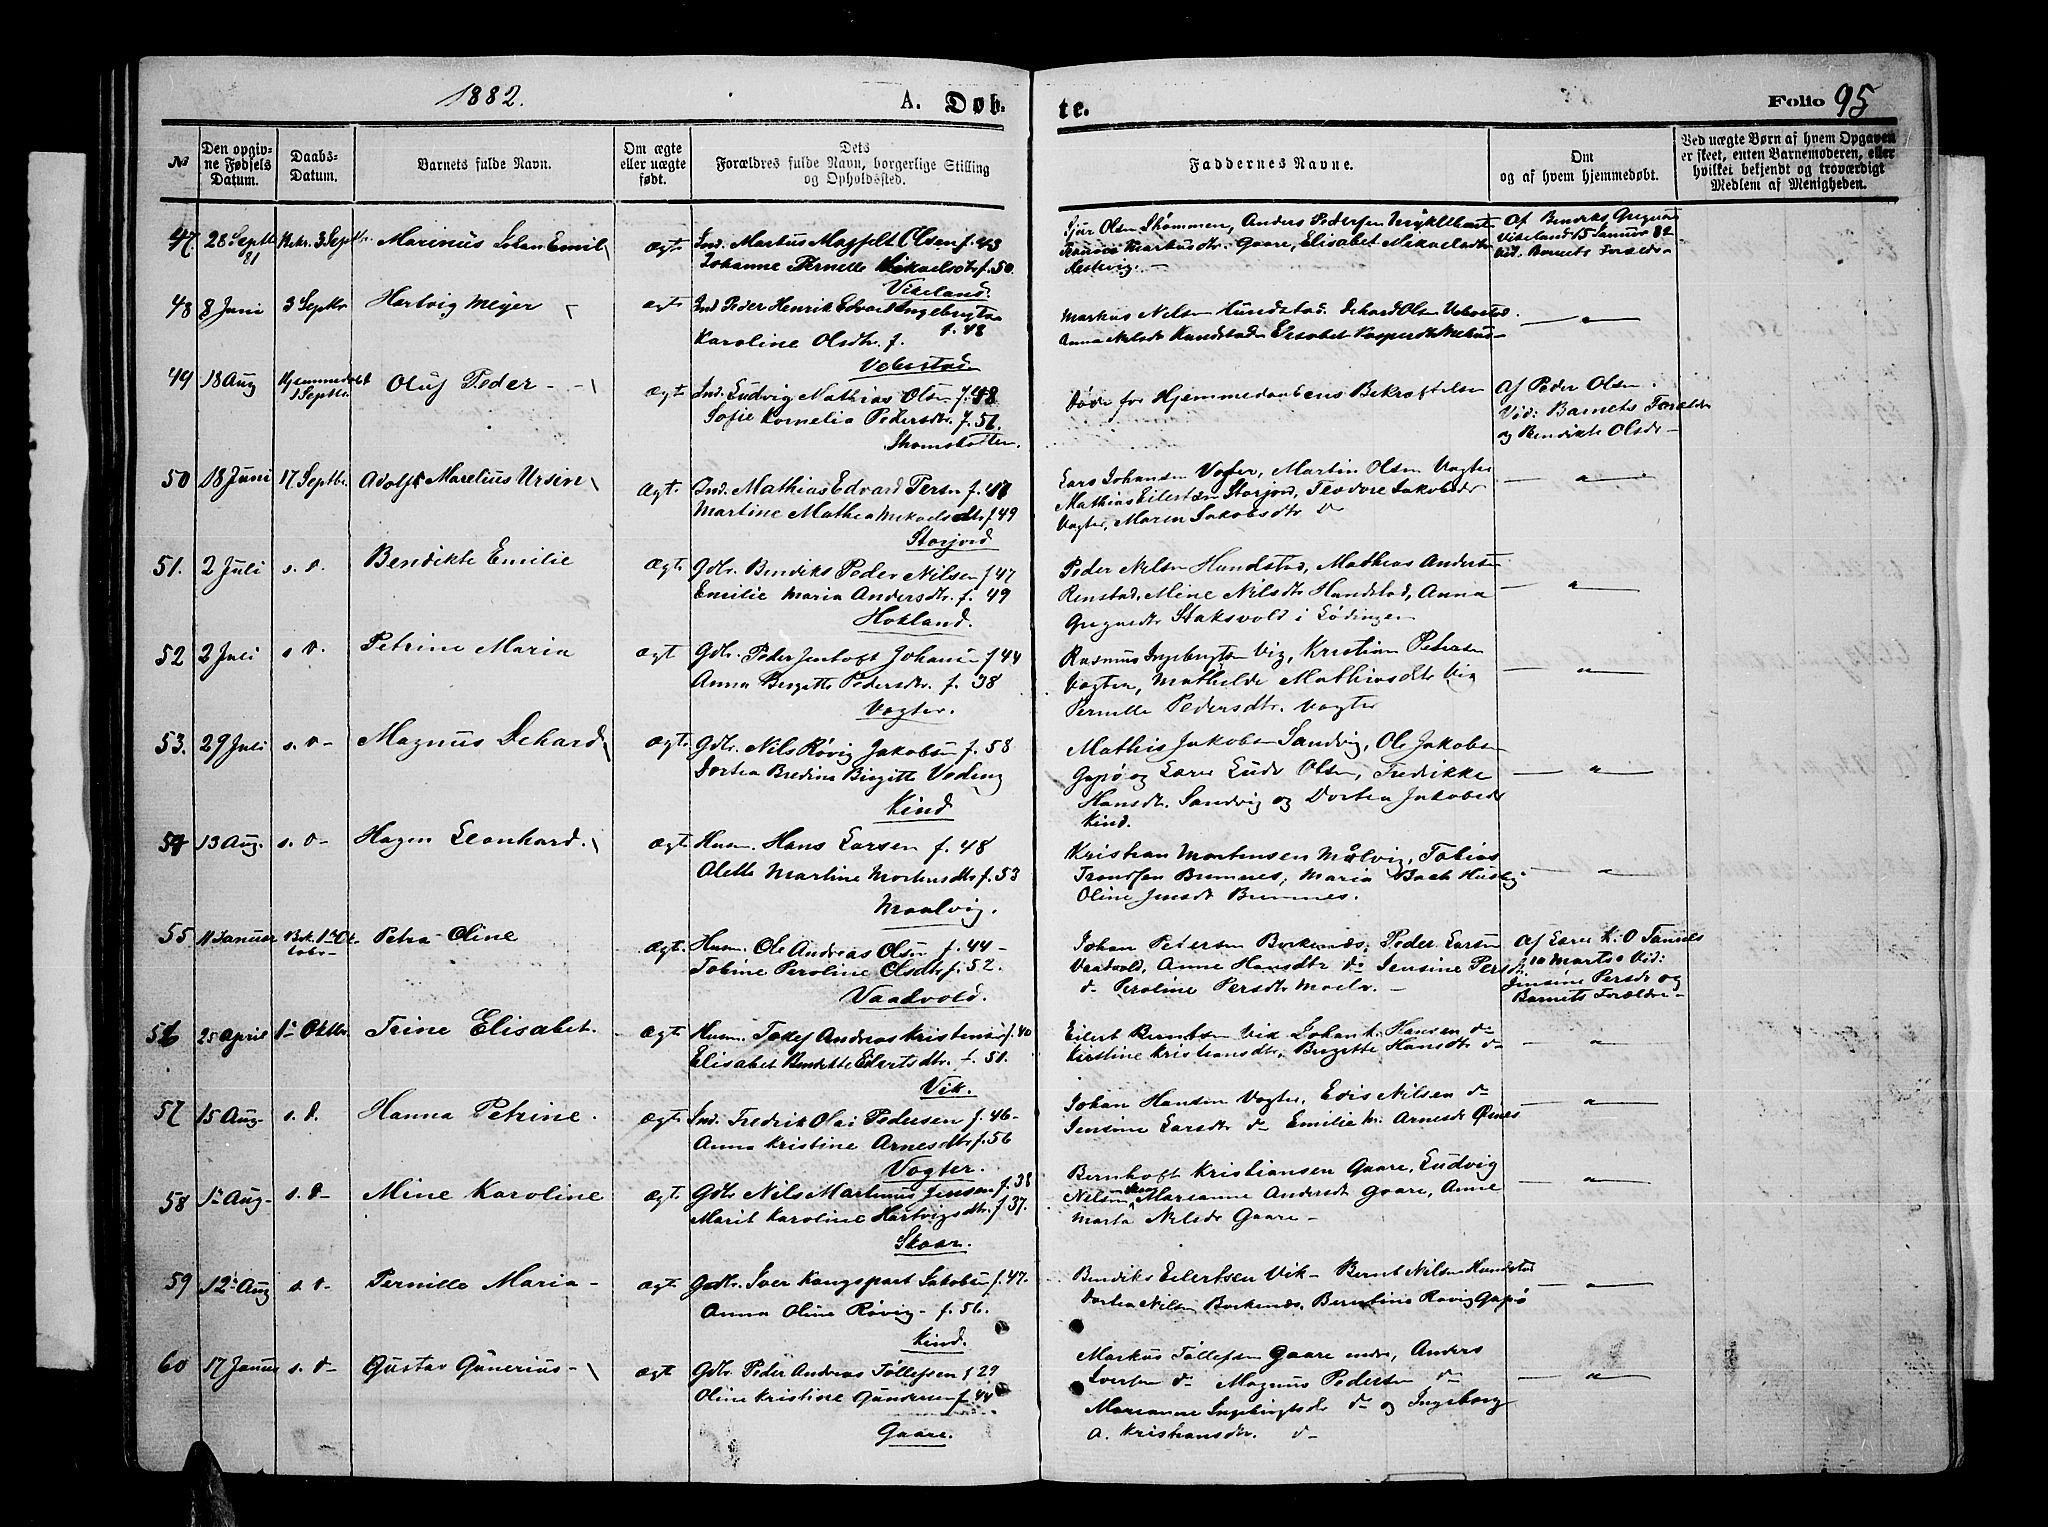 1882.
A. Døb-
te.
Folio 95
№
Den opgiv-
ne Fødsels
Datum.
Daabs-
Datum.
Barnets fulde Navn.
Om ægte
eller uægte
født.
Dets
Forældres fulde Navn, borgerlige Stilling
og Opholdssted.
Faddernes Navne.
Om
og af hvem hjemmedøbt.
Ved uægte Børn af hvem Opgaven
er skeet, enten Barnemoderen, eller
hvilket bekjendt og troværdigt
Medlem af Menigheden.
47 28 Septb 81 Bekr. 3 Septbr. Marinus Johan Emil ægt.
Ind. Markus Olsen f. 43
Johanne Pernelle Mikaelsdtr f. 50.
Vikeland.
Olsen Skommen, Anders Pedersen
Markusdtr. Gaare, Elisabet Mikaelsdtr
Af Bendiks
Vikeland 15 Januar 82
Vid. Barnets Forældre
48 8 Juni 3 Septbr Hartvig Meyer ægt
Ind Peder Henrik Edvard Ingebrigtsn
f. 48
Karoline Olsdtr. f.
Markus Nilsen Hundstad. Dehard Olsen
Anna Nilsdtr Hundstad Elisabet
— " —
49 18 Aug Hjemmedøbt
1 Septbr. Oluf Peder ægt
Ind. Ludvig Mathias Olsen f. 48
Sofie Kornelia Pedersdtr. f. 56.
Døde før Hjemmedaabens Bekræftelse
Af Peder Olsen.
Vid: Barnets Forældre
og Bendikte Olsdr
50 18 Juni 17 Septbr. Adolf Marelius Ursin ægt.
Ind. Mathias Edvard Persn f. 47
Martine Mathea Mikaelsdtr f 49
Storjord
Lars Johansen Vogter, Martin Olsen Vogter
Mathias Eilertsen Storjord, Teodore Jakobsdr
Vogter, Maren Jakobsdtr do
— " —
51. 2 Juli s. D. Bendikte Emilie ægt.
Gdbr. Bendiks Peder Nilsen f 47
Emilie Maria Andersdtr. f. 49
Hokland.
Peder Nilsen Hundstad, Mathias Andersen
Renstad, Mene Nilsdtr Hundstad, Anna
Staksvold i Lødingen
— " —
52 2 Juli s. D. Petrine Maria ægt
Gdbr. Peder Jentoft Johansn f 44
Anna Birgitte Pedersdtr. f. 38
Vogter.
Rasmus Ingebrigtsn Vig, Kristian Petersen
Vogter, Mathilde Mathiasdtr Vig
Pernille Pedersdtr. Vogter
— " —
53. 29 Juli s. D- Magnus Dehard ægt.
Gdbr. Nils Røvig Jakobsen f. 58
Dortea Bredine Birgitte Voding
Kind
Mathis Jakobsn Sandvig, Ole Jakobsen
Gapø og Lærer Ludv Olsen, Fredikke
Hansdtr. Sandvig og Dortea Jakobsdr
Kind.
— " —
54 13 Aug. s. D- Hagen Leonhard. ægt.
Husm. Hans Larsen f. 48
Alette Martine Mortensdtr f. 53
Maalvig.
Kristian Mortensen Målvig, Tobias
Trondsen Bremnes, Maria Bach Husby
Oline Jensdtr Bremnes.
— " —
55 11 Januar Bek. 1ste Ok-
tobr Petra Oline ægt
Husm. Ole Andreas Olsen f. 44-
Tobine Peroline Olsdtr f. 52.
Vaadvold.
Johan Pedersen Borkenæs, Peder Larsen
Vaadvold, Anne Hansdtr do Jensine Persdtr
do Peroline Persdtr
Af Lærer K. O Tannes
10 Marts Vid:
Jensine Persdr og
Barnets Forældre-
56 25 April 1ste Oktbr Trine Elisabet. ægt.
Husm. Tollef Andreas Kristensn f. 40
Elisabet Bendikte Eilertsdtr. f. 51.
Vik.
Eilert Berntsen Vik Johan K. Hansen do
Kirstine Kristiansdtr, Birgitte Hansdtr do
— " —
57 15 Aug- s. D. Hanna Petrine. ægt.
Ind. Fredrik Olai Pedersen f. 46-
Anna Kristine Arnesdtr f. 56
Vogter.
Johan Hansen Vogter, Edis Nilsen do
Jensine Larsdtr do Emilie M. Arnesdr
— " —
58 1ste Aug- s. D- Mine Karoline ægt.
Gdbr Nils Martinus Jensen f. 38
Marit Karoline Hartvigsdtr. f 37.
Skaar.
Bernhoft Kristiansen Gaare, Ludvig
Nilsen Marianne Andersdt Gaare, Anne
Marta Nilsdr Gaare -
— " —
59 12te Aug s. D- Pernille Maria - ægt.
Gdbr. Iver Kongspart Jakobsn f. 47.
Anna Oline Røvig - f. 56.
Kind.
Bendiks Eilertsen Vik - Bernt Nilsen Hundstad
Dortea Nilsen Borkenæs, Berntine Røvig Gapø
— " —
60 17 Januar s. D- Gustav Gunerius- ægt
Gdbr. Peder Andreas Tollefsen f 29
Oline Kristine Gundersen f. 44
Gaare.
Markus Tollefsen Gaare Anders
Iversen do Magnus Pedersen do
Marianne Ingebrigtsdr do og Ingeborg
A. Kristiansdtr. do
— " —